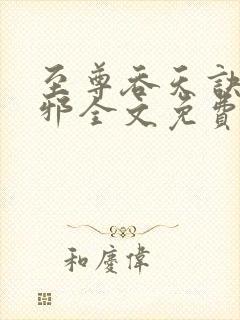 至尊吞天訣
邪全文免費
和慶偉